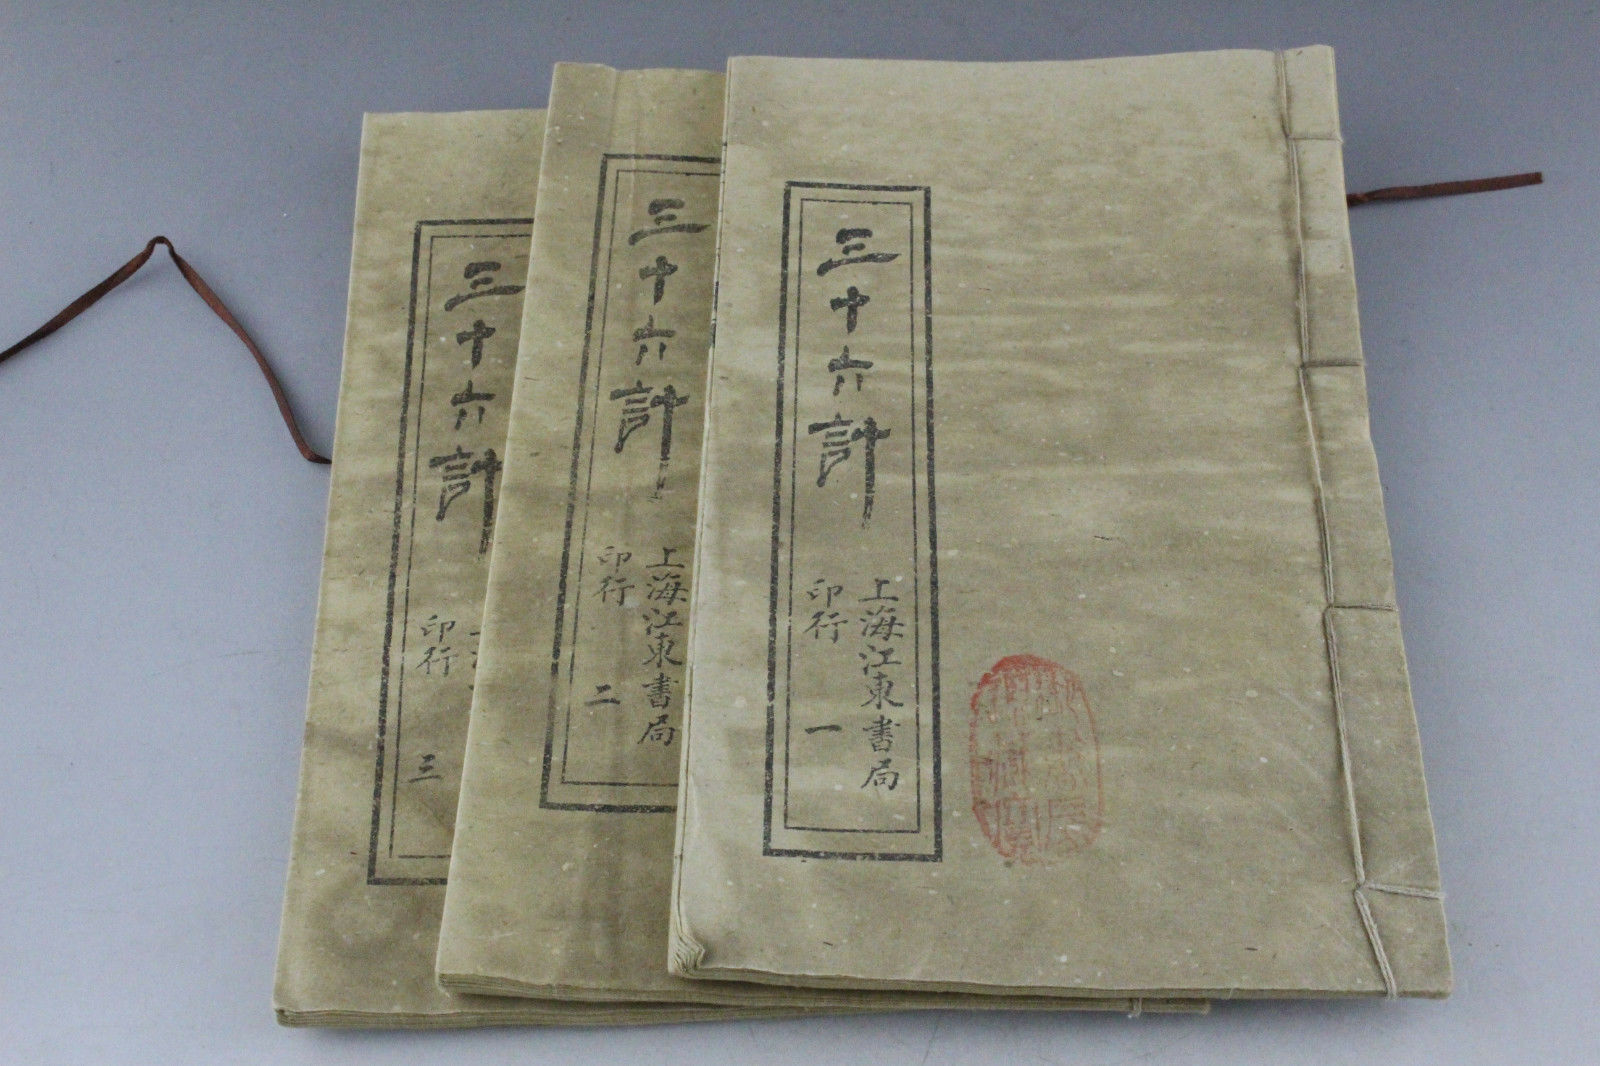 三十六計
上海江東書局
印行 一
三十六計
上海江東書局
印行 二
三十六計
印行 三